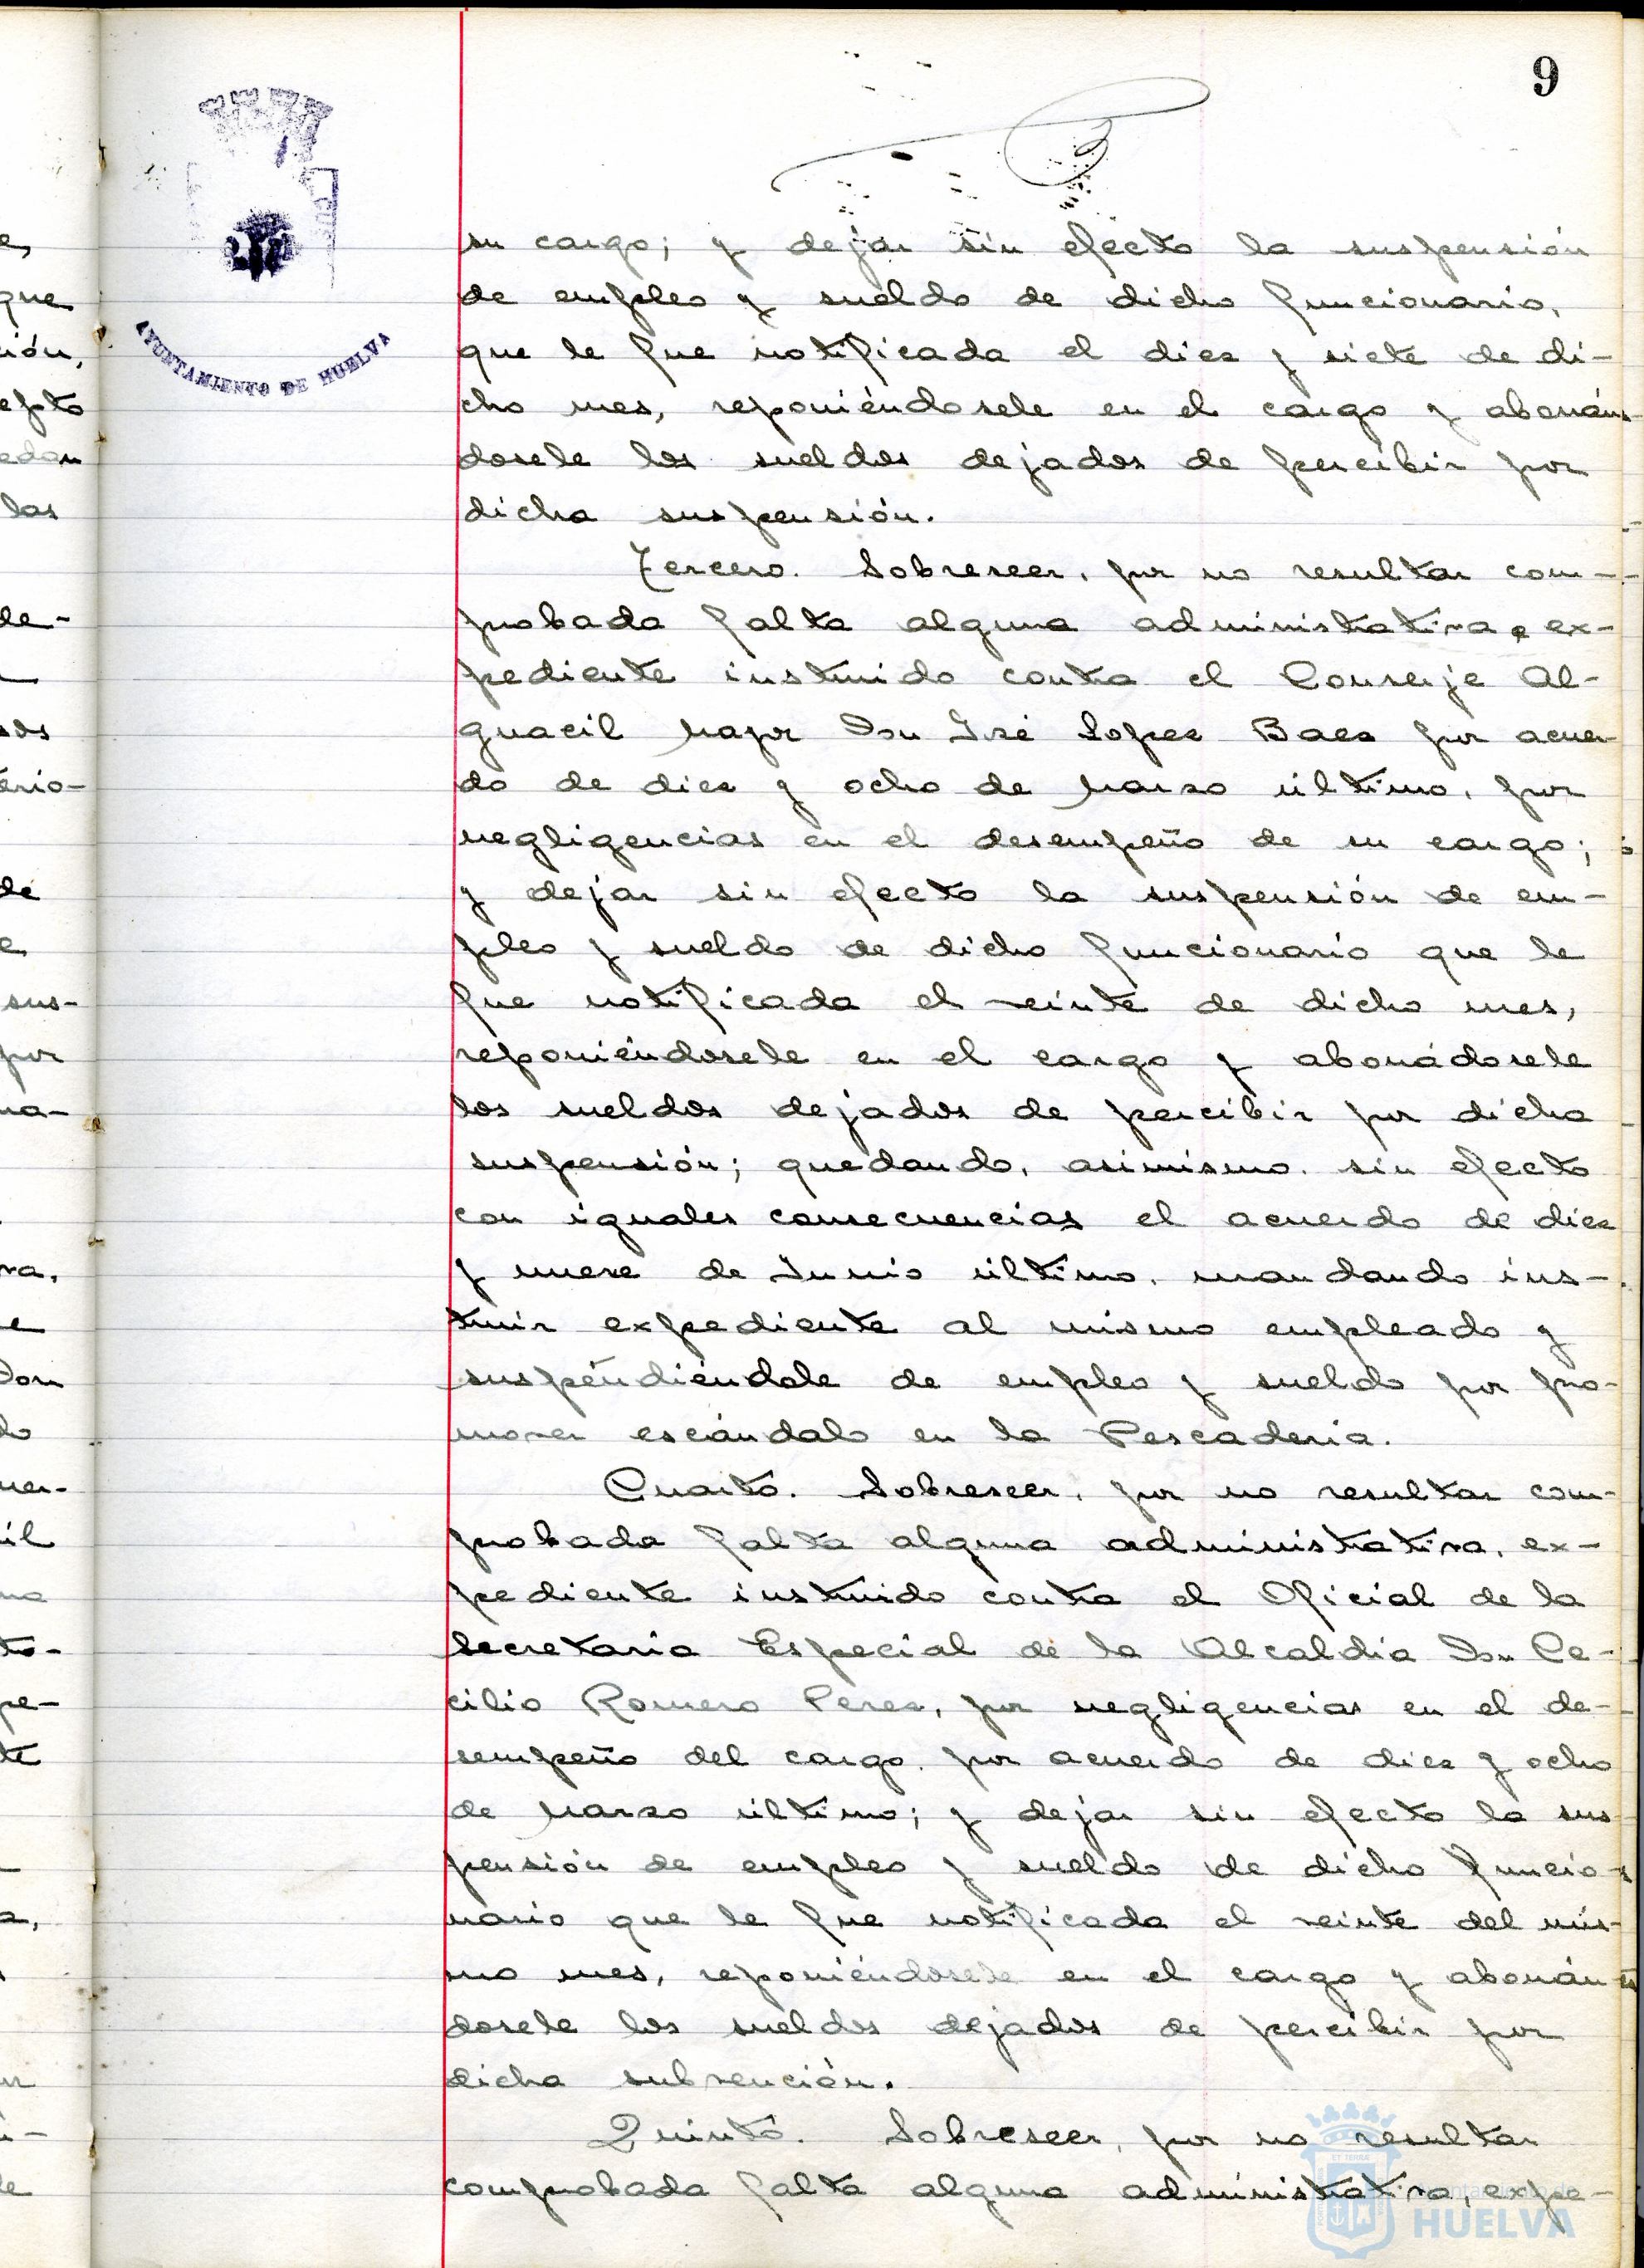 9
AYUNTAMIENTO DE HUELVA
su cargo; y dejar sin efecto la suspensión
de empleo y sueldo de dicho funcionario,
que le fue notificada el diez y siete de di-
cho mes, reponiéndosele en el cargo y abonán-
dosele los sueldos dejados de percibir por
dicha suspensión.
Tercero. Sobreseer, por no resultar com-
probada falta alguna administrativa, ex-
pediente instruido contra el Conserje Al-
guacil Mayor Don José Lopez Baez por acuer-
do de diez y ocho de Marzo último, por
negligencias en el desempeño de su cargo;
y dejar sin efecto la suspensión de em-
pleo y sueldo de dicho funcionario que le
fue notificada el veinte de dicho mes,
reponiéndosele en el cargo y abonádosele
los sueldos dejados de percibir por dicha
suspensión; quedando, asimismo, sin efecto
con iguales consecuencias el acuerdo de diez
y nueve de Junio último, mandando ins-
truir expediente al mismo empleado y
suspéndiéndole de empleo y sueldo por pro-
mover escándalo en la Pescadería.
Cuarto. Sobreseer, por no resultar com-
probada falta alguna administrativa, ex-
pediente instruido contra el Oficial de la
Secretaría Especial de la Alcaldía Don Ce-
cilio Romero Perez, por negligencias en el de-
sempeño del cargo, por acuerdo de diez y ocho
de Marzo último; y dejar sin efecto la sus-
pensión de empleo y sueldo de dicho funcio-
nario que le fue notificada el veinte del mis-
mo mes, reponiéndosele en el cargo y abonán-
dosele los sueldos dejados de percibir por
dicha subvención.
Quinto. Sobreseer, por no resultar
comprobada falta alguna administrativa, expe-
HUELVA